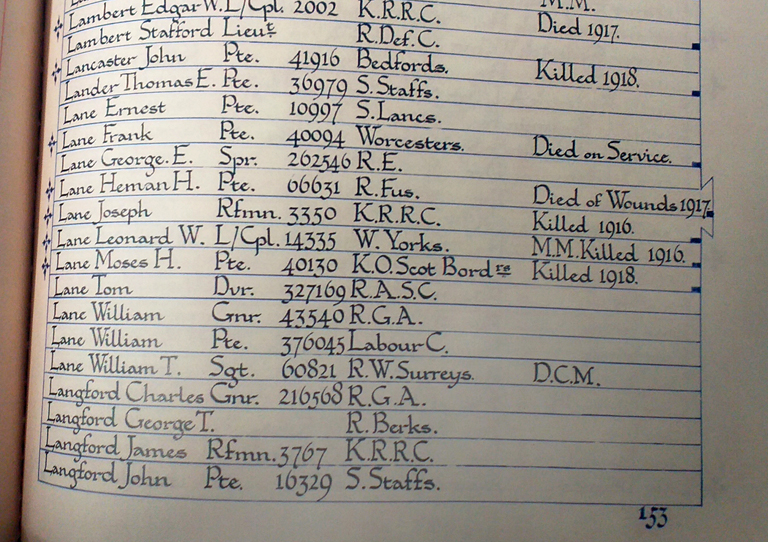 M.M.
Lambert Edgar W. L/Cpl. 2002 K.R.R.C. Died 1917.
Lambert Stafford Lieut R.Def.C.
Lancaster John Pte. 41916 Bedfords. Killed 1918.
Lander Thomas E. Pte. 36979 S.Staffs.
Lane Ernest Pte. 10997 S.Lancs.
Lane Frank Pte. 40094 Worcesters. Died on Service.
Lane George.E. Spr. 262546 R.E.
Lane Heman H. Pte. 66631 R.Fus. Died of Wounds 1917.
Lane Joseph Rfmn. 3350 K.R.R.C. Killed 1916.
Lane Leonard W. L/Cpl. 14335 W.Yorks. M.M.Killed 1916.
Lane Moses H. Pte. 40130 K.O.Scot Bordrs Killed 1918.
Lane Tom Dvr. 327169 R.A.S.C.
Lane William Gnr. 43540 R.G.A.
Lane William Pte. 376045 Labour C.
Lane William T. Sgt. 60821 R.W.Surreys. D.C.M.
Langford Charles Gnr. 216568 R.G.A.
Langford George T. R.Berks.
Langford James Rfmn. 3767 K.R.R.C.
Langford John Pte. 16329 S.Staffs.
153